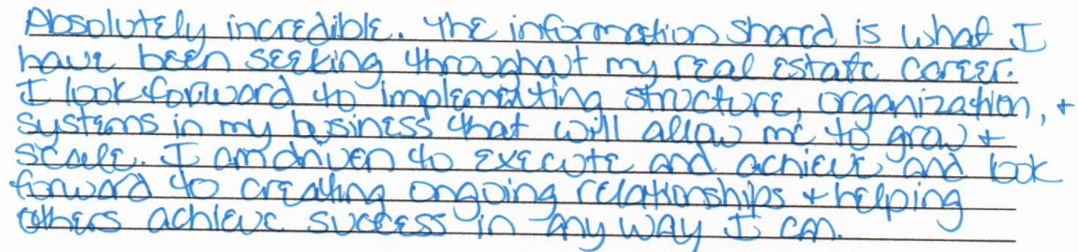 Absolutely incredible. The information shared is what I
have been seeking throughout my real estate career.
I look forward to implementing structure, organization, +
systems in my business that will allow me to grow +
scale. I am driven to execute and achieve and look
forward to creating ongoing relationships + helping
others achieve success in any way I can.